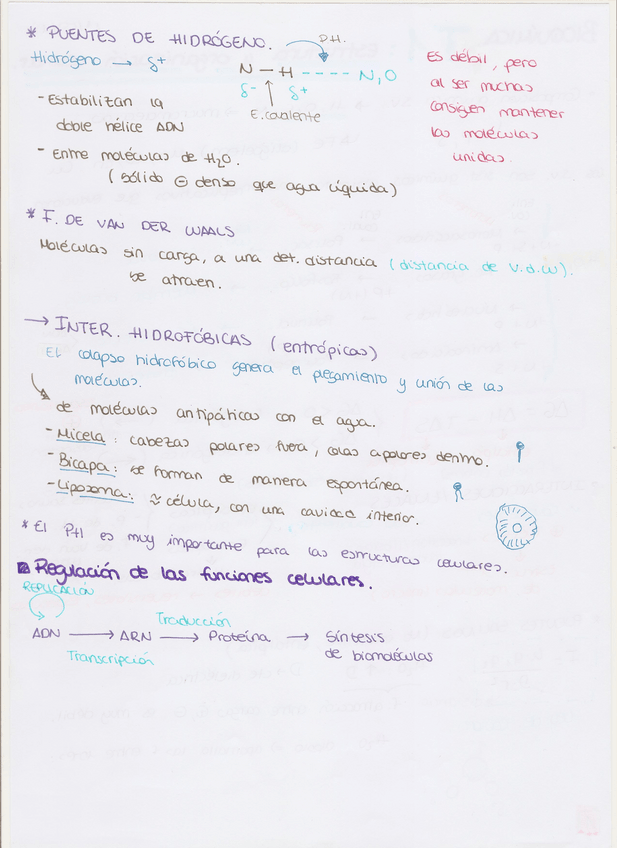 * PUENTES DE HIDRÓGENO.
P.H.
Hidrógeno → δ+
N — H ---- N,O
δ- δ+
E. covalente
Es débil, pero
al ser muchas
consiguen mantener
las moléculas
unidas.
- Estabilizan la
doble hélice ADN
- Entre moléculas de H₂O.
(sólido ⊖ denso que agua líquida)
* F. DE VAN DER WAALS
Moléculas sin carga, a una det. distancia (distancia de V.d.W).
se atraen.
→ INTER. HIDROFÓBICAS (entrópicas)
El colapso hidrofóbico genera el plegamiento y unión de las
moléculas.
de moléculas antipáticas con el agua.
- Micela: cabezas polares fuera, colas apolares dentro.
- Bicapa: se forman de manera espontánea.
- Liposoma: ≈ célula, con una cavidad interior.
* El PH es muy importante para las estructuras celulares.
Regulación de las funciones celulares.
REPLICACIÓN
Traducción
ADN → ARN → Proteína → Síntesis
de biomoléculas
Transcripción